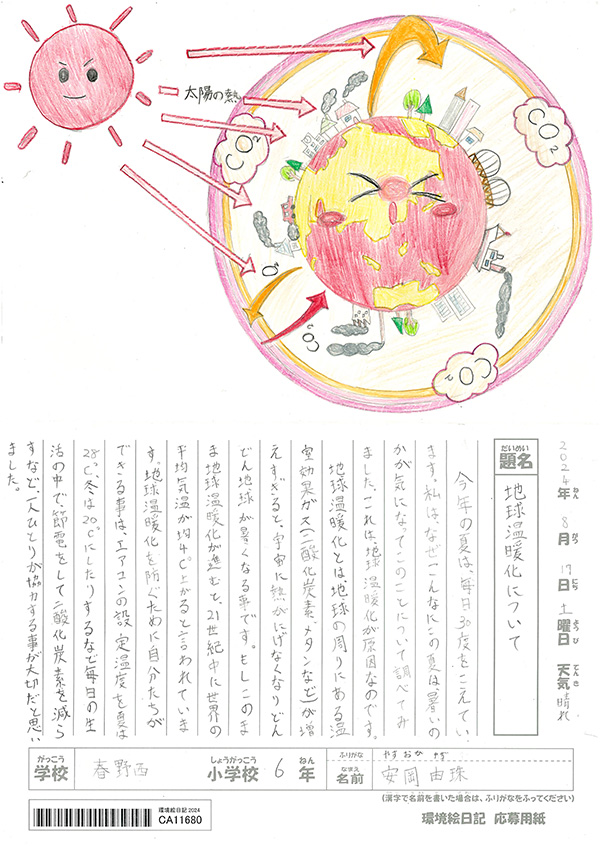 太陽の熱
CO2
CO2
CO2
CO2
2024年ねん 8月がつ 17日にち 土曜日ようび 天気てんき 晴れ
だいめい
題名
地球温暖化について
今年の夏は、毎日30度をこえてい
ます。私は、なぜこんなにこの夏は暑いの
かが気になってこのことについて調べてみ
ました。これは、地球温暖化が原因なのです。
地球温暖化とは、地球の周りにある温
室効果ガス(二酸化炭素、メタンなど)が増
えすぎると、宇宙に熱がにげなくなりどん
どん地球が暑くなる事です。もしこのま
ま地球温暖化が進むと、21世紀中に世界の
平均気温が均4℃上がると言われていま
す。地球温暖化を防ぐために自分たちが
できる事は、エアコンの設定温度を夏は
28℃、冬は20℃にしたりするなど毎日の生
活の中で、節電をして二酸化炭素を減ら
すなど、一人ひとりが協力する事が大切だと思い
ました。
がっこう
学校 春野西 しょうがっこう
小学校 6 ねん
年
ふりがな やすおか
なまえ
名前 安岡 由珠
(漢字で名前を書いた場合は、ふりがなをふってください)
環境絵日記 2024
CA11680
環境絵日記 応募用紙